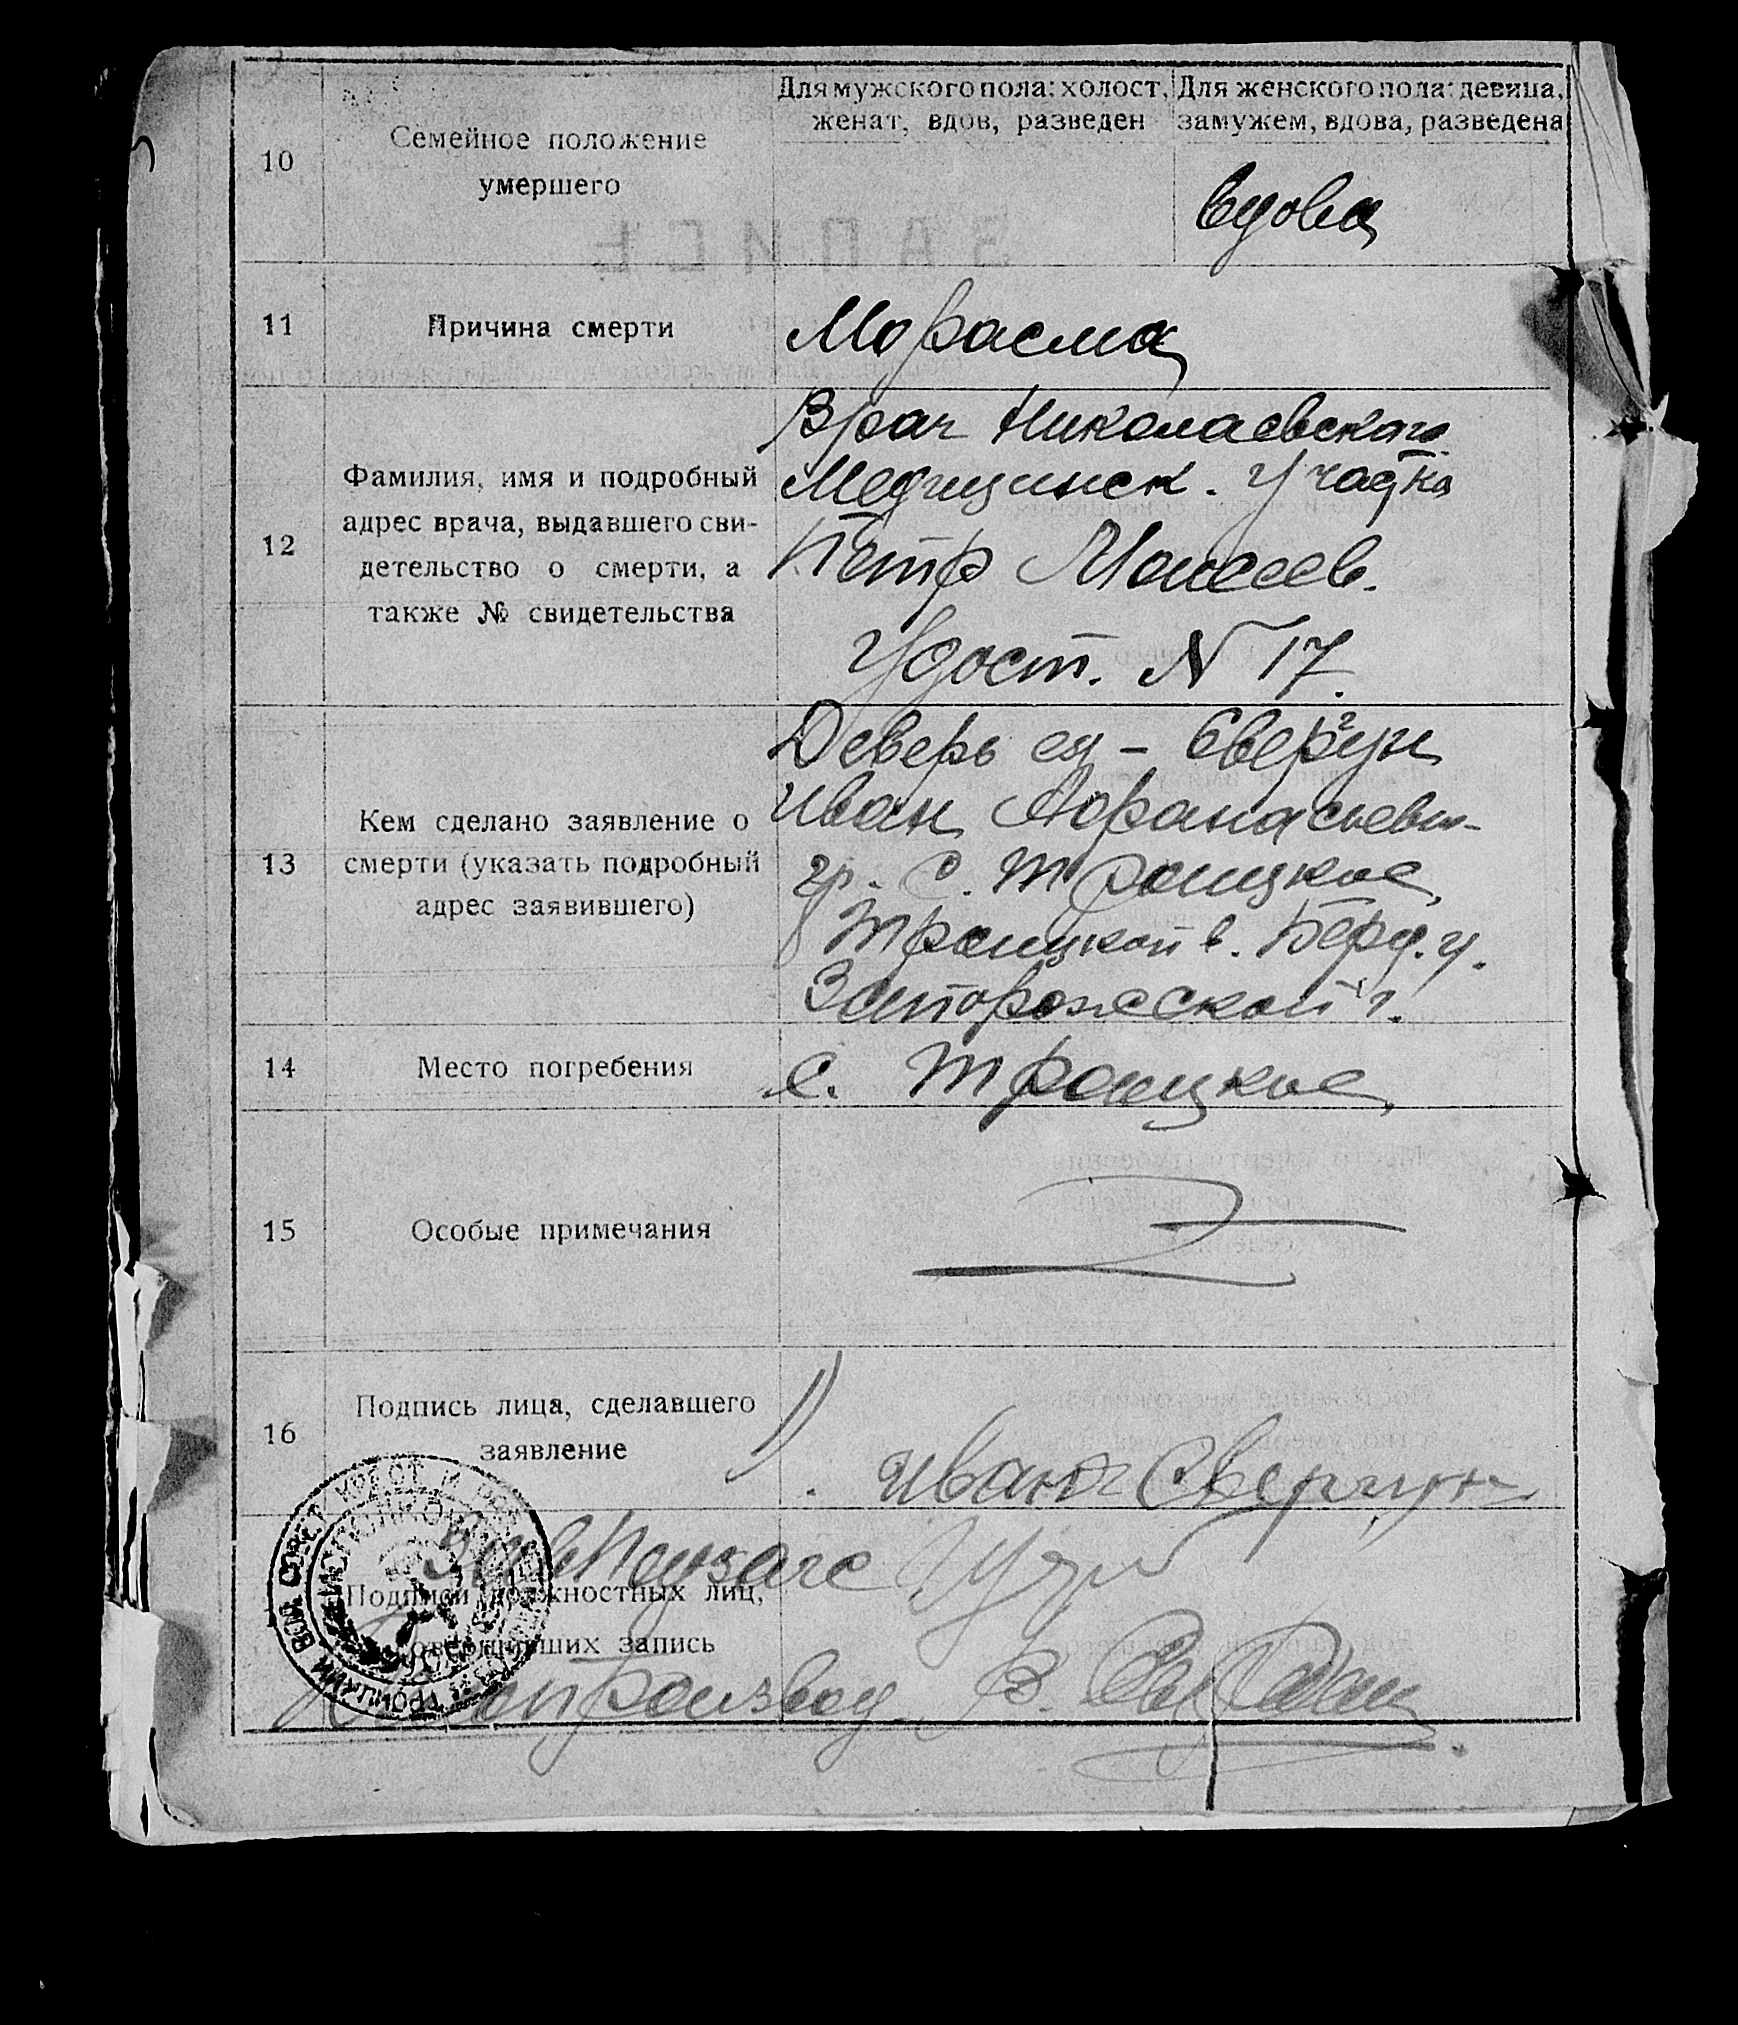 10
Семейное положение
умершего
Для мужского пола: холост,
женат, вдов, разведен
Для женского пола: девица,
замужем, вдова, разведена
вдова
ЗАПИСЬ
11
Причина смерти
Марасма
12
Фамилия, имя и подробный
адрес врача, выдавшего сви-
детельство о смерти, а
также № свидетельства
Врач Николаевского
Медицинск. участка
Петр Моисеев.
Удост. N 17.
13
Кем сделано заявление о
смерти (указать подробный
адрес заявившего)
Деверь ея - Свергун
Иван Афанасьев.
гр. с. Троицкое,
Троицкой в. Берд. у.
Запорожской г.
14
Место погребения
с. Троицкое,
15
Особые примечания
16
Подпись лица, сделавшего
заявление
1). Иван Свергун
Подписи должностных лиц,
совершивших запись
Зав. Позагс
Делопроизвод. В.